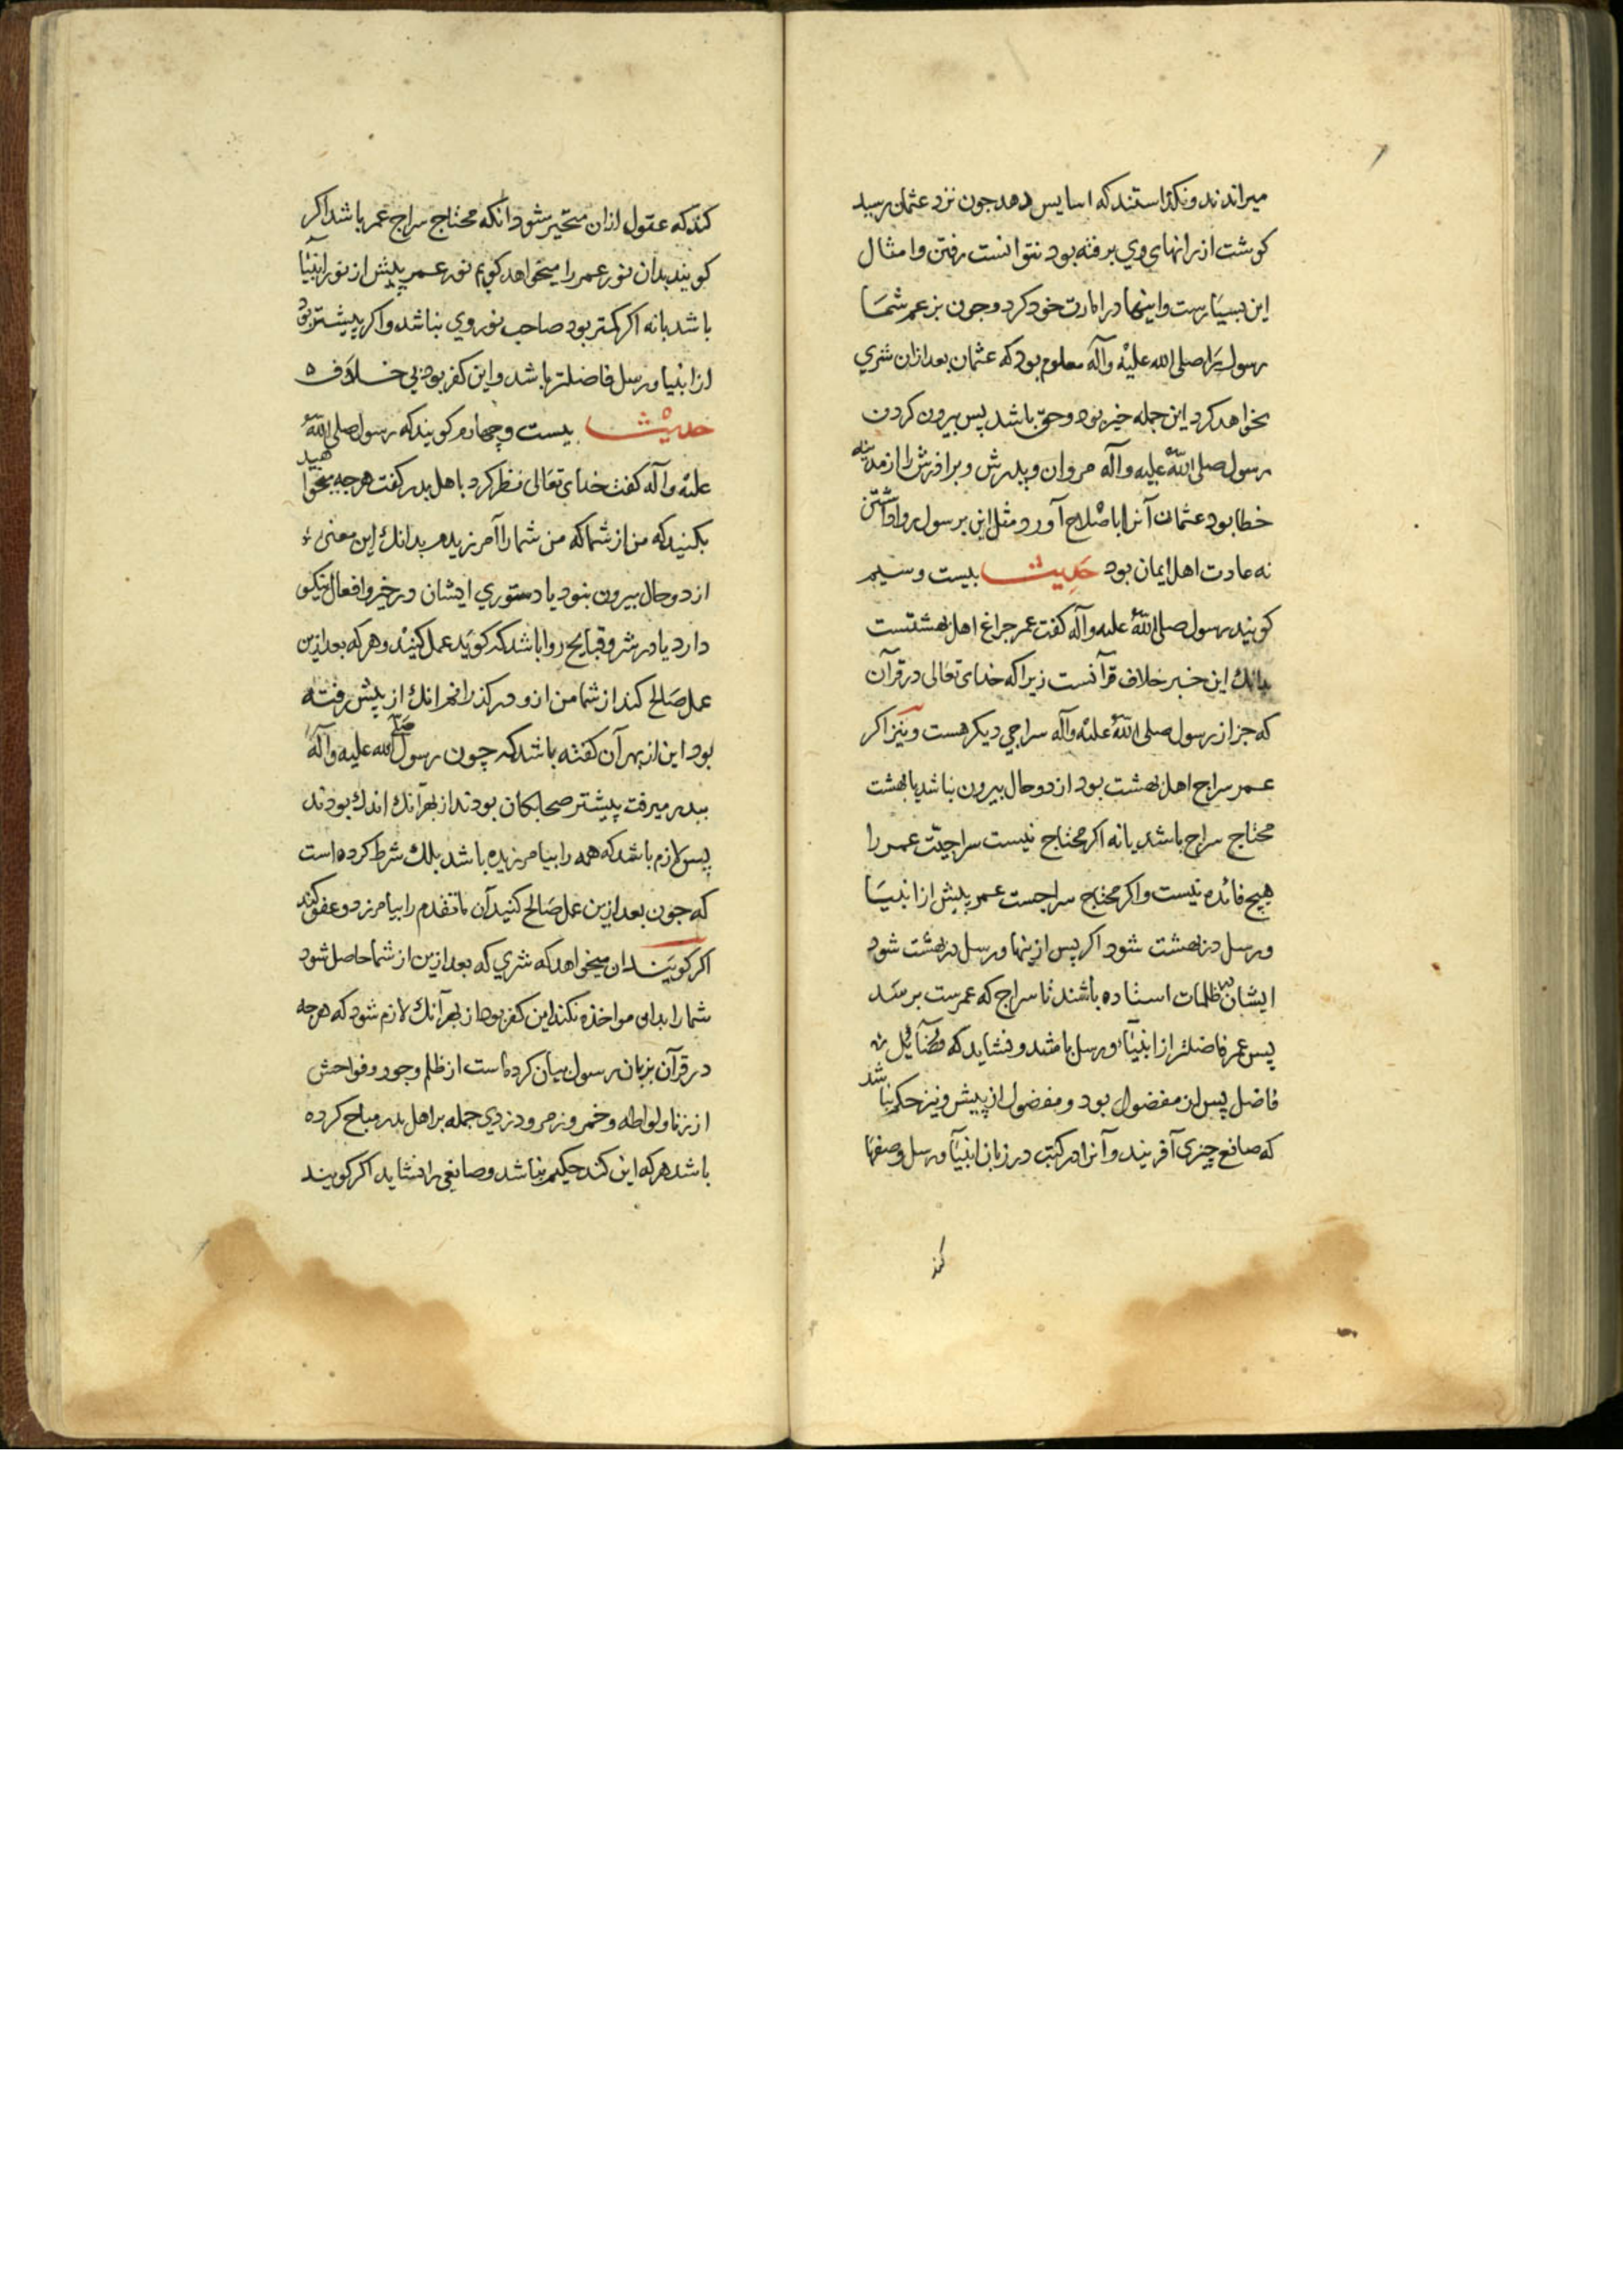 میراندند و نکذاستند که اسایس دهد جون نزد عثمان رسید
کوشت از رانهای وي برفته بود نتوانست رفتن و امثال
این بسیارست و اینها در امارت خود کرد و جون بزعم شما
رسول را صلی الله علیه وآله معلوم بود که عثمان بعد ازان شري
بخواهد کرد این جمله خیر بود و حق باشد پس بیرون کردن
رسول صلی الله علیه وآله مروان و پدرش و برافرش را از مدینه
خطا بود عثمان آنرا باصلاح آورد و مثل این بر رسول روا داشتن
نه عادت اهل ایمان بود حدیث بیست و سیم
کویند رسول صلی الله علیه وآله کفت عمر جراغ اهل بهشتست
بدانك این خبر خلاف قرآنست زیرا که خدای تعالی در قرآن
که جز از رسول صلی الله علیه وآله سراجي دیکر هست و نیز اکر
عمر سراج اهل بهشت بود از دو حال بیرون نباشد یا بهشت
محتاج سراج باشد یا نه اکر محتاج نیست سراجیت عمر را
هیچ فائده نیست و اکر محتاج سراجست عمر پیش از انبیا
و رسل در بهشت شود اکر پس از ینها و رسل در بهشت شود
ایشان در ظلمات استاده باشند تا سراج که عمرست برسد
پس عمر فاضلتر از انبیا و رسل باشد و نشاید که
فاضل پس از مفضول بود و مفضول از پیش و نیز حکم نباشد
که صانع چیزی آفریند و آنرا در کتب در زبان انبیا و رسل وصفها
کند
کند که عقول ازان متحیر شود انکه محتاج سراج عمر باشد اکر
کویند بدان نور عمر را میخواهد کویم نور عمر پیش از نور انبیا
باشد یا نه اکر کمتر بود صاحب نور وي نباشد و اکر پیشتر بود
از انبیا و رسل فاضلتر باشد و این کفر بود بي خلاف ه
حدیث بیست و چهارم کویند که رسول صلی الله
علیه وآله کفت خدای تعالی نظر کرد باهل بدر کفت هر چه میخواهید
بکنید که من از شما که من شما را آمرزیدم بدانك این معنی
از دو حال بیرون نبود یا دستوري ایشان در خیر و افعال نیکو
دارد یا در شر و قبایح روا باشد که کوید عمل کنید و هر که بعد ازین
عمل صالح کند از شما من ازو در کذرانم انك از پیش رفته
بود این از بهر آن کفته باشد که چون رسول صلی الله علیه وآله
ببدر میرفت پیشتر صحابکان بودند از بهر آنك اندك بودند
پس لازم باشد که همه را بیامرزیده باشد بلك شرط کرده است
که جون بعد ازین عمل صالح کنید آن ما تقدم را بیامرزد و عفو کند
اکر کویند ان میخواهد که شري که بعد ازین از شما حاصل شود
شما را بدان مواخذه نکند این کفر بود از بهر آنك لازم شود که هرچه
در قرآن بزبان رسول بیان کرده است از ظلم و جور و فواحش
از زنا و لواطه و خمر و زمر و دزدي جمله بر اهل بدر مباح کرده
باشد هر که این کند حکیم نباشد و صانعي را نشاید اکر کویند